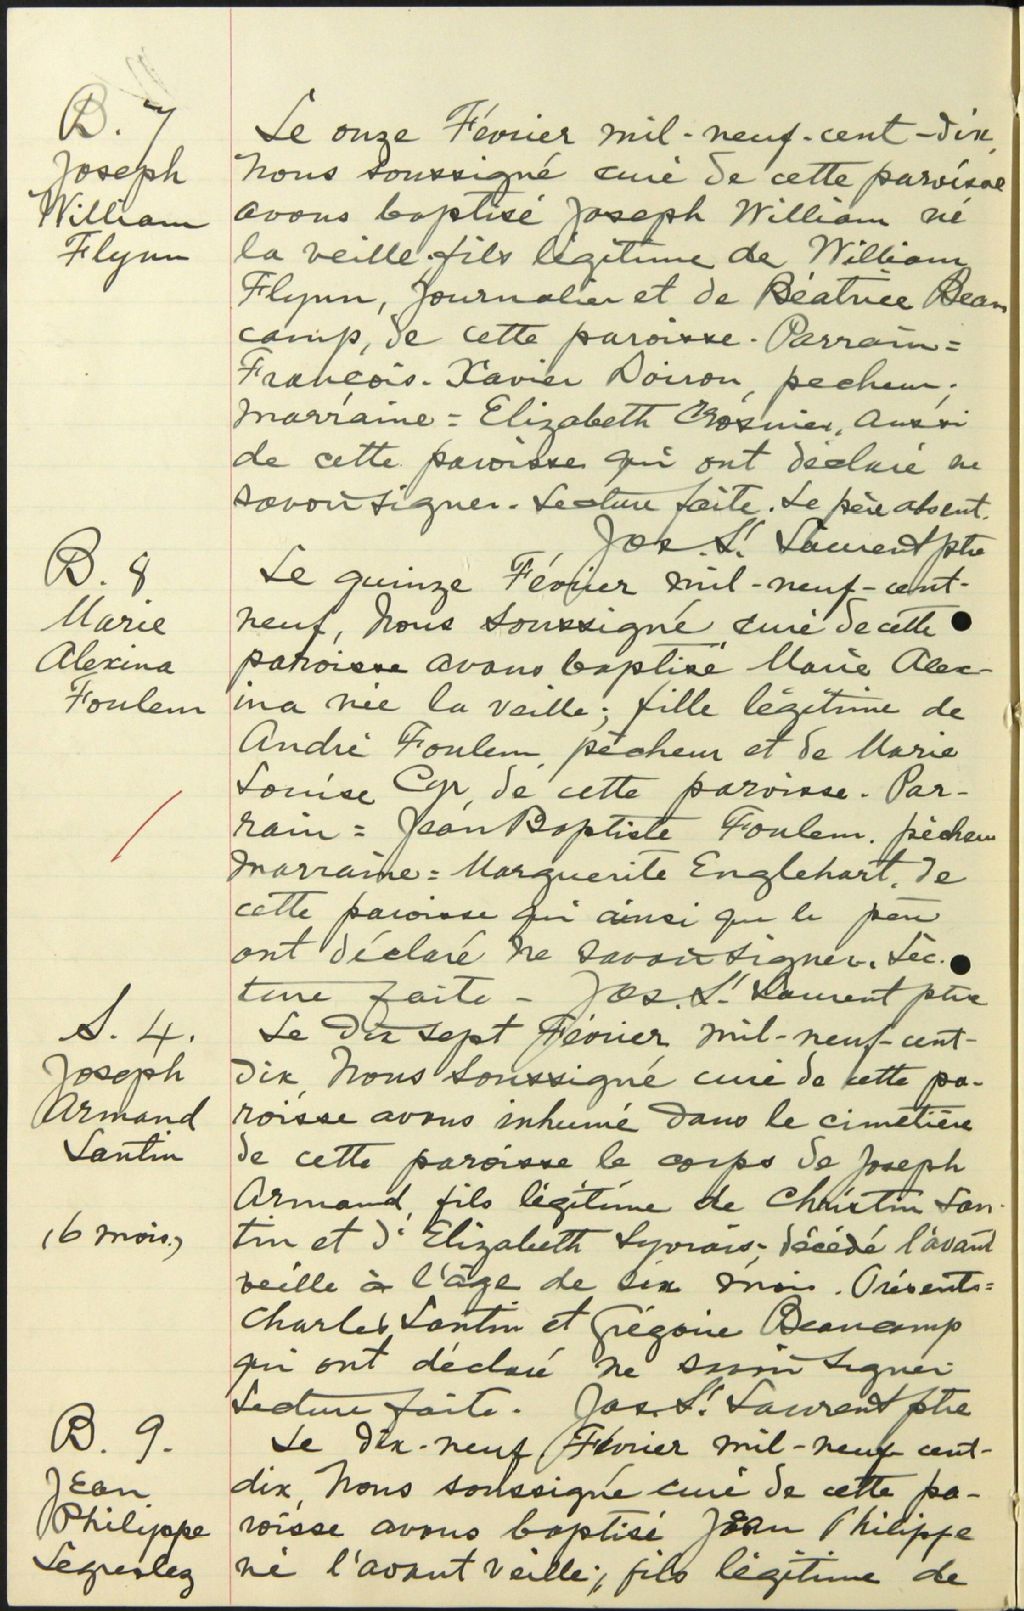 B. 7
Joseph
William
Flynn
Le onze Février mil-neuf-cent-dix,
Nous soussigné curé de cette paroisse
avons baptisé Joseph William né
la veille fils légitime de William
Flynn, journalier et de Béatrice Beau
camp, de cette paroisse. Parrain =
François-Xavier Doiron, pecheur,
marraine = Elizabeth Crosnier, aussi
de cette paroisse qui ont déclaré ne
savoir signer. Lecture faite. Le père absent.
Jos. St. Laurent ptre
B. 8
Marie
Alexina
Foulem
Le quinze Février mil-neuf-cent-
neuf, Nous soussigné, curé de cette
paroisse avons baptisé Marie Alex-
ina née la veille; fille légitime de
André Foulem, pêcheur et de Marie
Louise Cyr, de cette paroisse. Par-
rain = Jean Baptiste Foulem. pêcheur
Marraine = Marguerite Englehart, de
cette paroisse qui ainsi que le père
ont déclaré ne savoir signer. Lec.
ture faite - Jos. St. Laurent ptre
S. 4.
Joseph
Armand
Lantin
(6 mois.)
Le Dix sept Février mil-neuf-cent-
dix, Nous soussigné curé de cette pa-
roisse avons inhumé dans le cimetière
de cette paroisse le corps de Joseph
Armand, fils légitime de Christin Lan-
tin et d'Elizabeth décédé l'avant
veille à l'âge de six mois. Présents =
Charles Lantin et Grégoire Beaucamp
qui ont déclaré ne savoir signer.
Lecture faite. Jos. St. Laurent ptre
B. 9.
Jean
Philippe
Legresley
Le dix-neuf Février mil-neuf cent-
dix, Nous soussigné curé de cette pa-
roisse avons baptisé Jean Philippe
né l'avant veille; fils légitime de